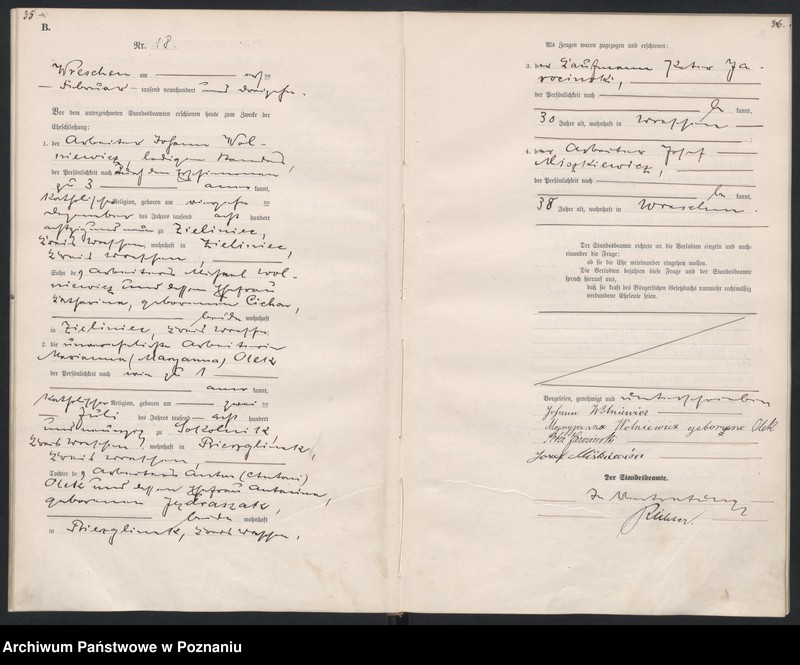 35
B.
Nr. 18.
Wreschen am
Februar tausend neunhundert und dreizehn.
Vor dem unterzeichneten Standesbeamten erschienen heute zum Zwecke der
Eheschließung:
1. der Arbeiter Johann Wol-
niewicz, ledigen Standes,
der Persönlichkeit nach
zu 3 aner kannt,
katholischer Religion, geboren am
Dezember des Jahres tausend acht hundert
achtzig und neun zu Zieliniec,
Kreis Wreschen, wohnhaft in Zieliniec,
Kreis Wreschen,
Sohn des Arbeiters Michael Wol-
niewicz und dessen Ehefrau
Katharina, geborenen Cichor,
beide wohnhaft
in Zieliniec, Kreis Wreschen,
2. die unverehelichte Arbeiterin
Marianna (Maryanna) Olek
der Persönlichkeit nach wie zu 1
aner kannt,
katholischer Religion, geboren am zwei
Juli des Jahres tausend acht hundert
und neunzig zu Sokolnik,
Kreis Wreschen, wohnhaft in Bierzglinek,
Kreis Wreschen,
Tochter des Arbeiters Anton (Antoni)
Olek und dessen Ehefrau Antonina,
geborenen Jędraszak,
beide wohnhaft
in Bierzglinek, Kreis Wreschen.
36.
Als Zeugen waren zugezogen und erschienen:
3. der Kaufmann Peter Ja-
rocinski,
der Persönlichkeit nach
be kannt,
30 Jahre alt, wohnhaft in Wreschen
;
4. der Arbeiter Josef
Miszkiewicz,
der Persönlichkeit nach
be kannt,
38 Jahre alt, wohnhaft in Wreschen.
Der Standesbeamte richtete an die Verlobten einzeln und nach-
einander die Frage:
ob sie die Ehe miteinander eingehen wollen.
Die Verlobten bejahten diese Frage und der Standesbeamte
sprach hierauf aus,
daß sie kraft des Bürgerlichen Gesetzbuchs nunmehr rechtmäßig
verbundene Eheleute seien.
Vorgelesen, genehmigt und unterschrieben
Johann Wolniewicz
Maryanna Wolniewicz geborene Olek
Josef
Der Standesbeamte.
In Vertretung
Archiwum Państwowe w Poznaniu